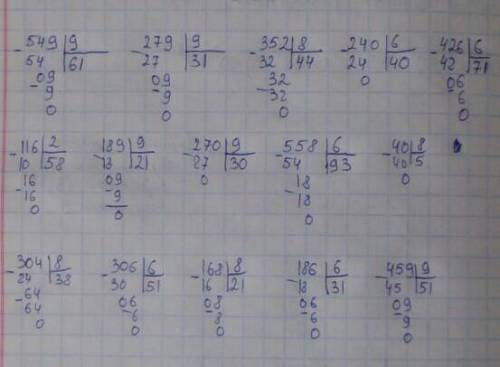 -549|9 -279|9 -352|8 -240|6 -426|6
54 |61 27 |31 32 |44 24 |40 42 |71
-09 -09 -32 0 -06
9 9 32 6
0 0 0 0
-116|2 -189|9 -270|9 -558|6 -40|8
10 |58 18 |21 27 |30 54 |93 40|5
-16 -09 0 -18 0
16 9 18
0 0 0
-304|8 -306|6 -168|8 -186|6 -459|9
24 |38 30 |51 16 |21 18 |31 45 |51
-64 -06 -08 -06 -09
64 6 8 6 9
0 0 0 0 0